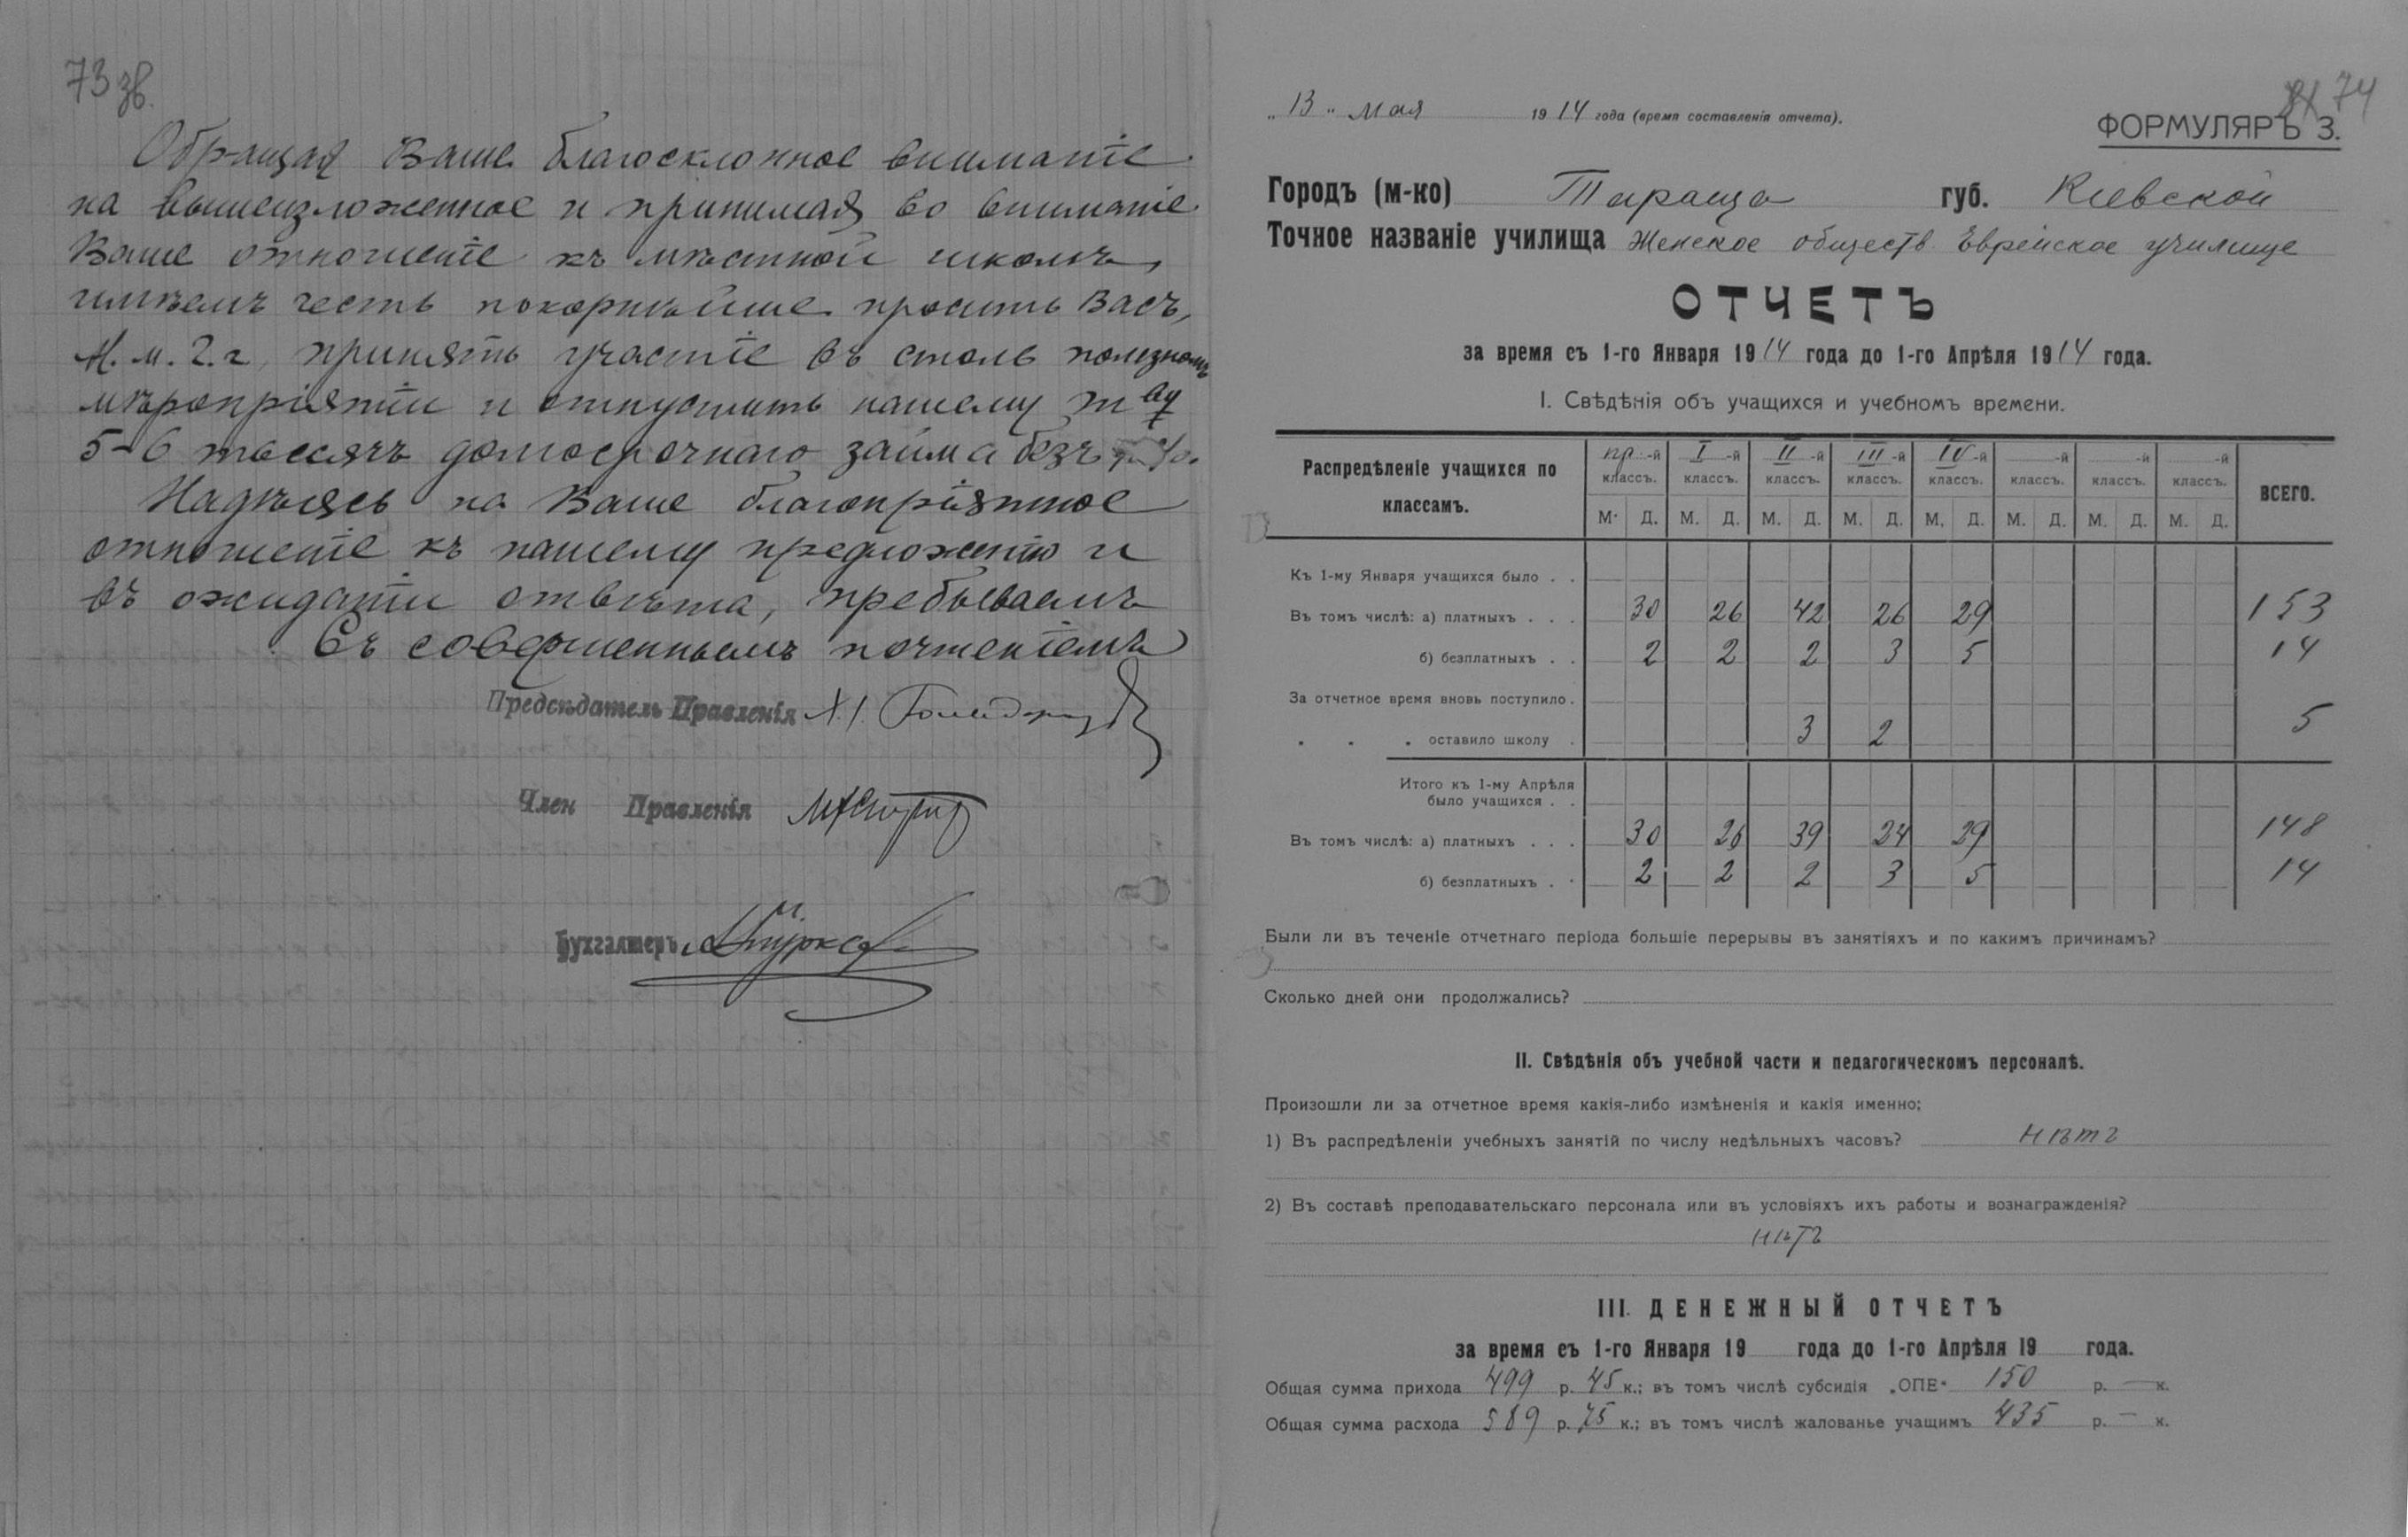 73 зв.
Обращая Ваше благосклонное вниманіе
на вышеизложенное и принимая во вниманіе
Ваше отношеніе къ мѣстной школѣ,
имѣемъ честь покорнѣйше просить Васъ,
М. м. Г. г., принять участіе въ столь полезномъ
мѣропріятіи и отпустить нашему т ву
5-6 тысячъ долгосрочнаго займа безъ %.
Надѣясь на Ваше благопріятное
отношеніе къ нашему предложенію и
въ ожиданіи отвѣта, пребываемъ
Съ совершеннымъ почтеніемъ
Предсѣдатель Правленія
Член Правленія
Бухгалтеръ
74
„13" мая 1914 года (время составленія отчета).
ФОРМУЛЯРЪ 3.
Городъ (м-ко) Тараща губ. Кіевской
Точное названіе училища Женское обществ. Еврейское училище
ОТЧЕТЪ
за время съ 1-го Января 1914 года до 1-го Апрѣля 1914 года.
I. Свѣдѣнія объ учащихся и учебномъ времени.
Распредѣленіе учащихся по классамъ. пр.-й классъ. I-й классъ. II-й классъ. III-й классъ. IV-й классъ. -й классъ. -й классъ. -й классъ. ВСЕГО.
М. Д. М. Д. М. Д. М. Д. М. Д. М. Д. М. Д. М. Д.
Къ 1-му Января учащихся было . .
Въ томъ числѣ: а) платныхъ . . . 30 26 42 26 29 153
б) безплатныхъ . . 2 2 2 3 5 14
За отчетное время вновь поступило . 5
" " " оставило школу . 3 2
Итого къ 1-му Апрѣля
было учащихся . .
Въ томъ числѣ: а) платныхъ . . . 30 26 39 24 29 148
б) безплатныхъ . . 2 2 2 3 5 14
Были ли въ теченіе отчетнаго періода большіе перерывы въ занятіяхъ и по какимъ причинамъ?
Сколько дней они продолжались?
II. Свѣдѣнія объ учебной части и педагогическомъ персоналѣ.
Произошли ли за отчетное время какія-либо измѣненія и какія именно:
1) Въ распредѣленіи учебныхъ занятій по числу недѣльныхъ часовъ? нѣтъ
2) Въ составѣ преподавательскаго персонала или въ условіяхъ ихъ работы и вознагражденія?
нѣтъ
III. ДЕНЕЖНЫЙ ОТЧЕТЪ
за время съ 1-го Января 19 года до 1-го Апрѣля 19 года.
Общая сумма прихода 499 р. 45 к.; въ томъ числѣ субсидія „ОПЕ" 150 р. — к.
Общая сумма расхода 589 р. 75 к.; въ томъ числѣ жалованье учащимъ 435 р. — к.